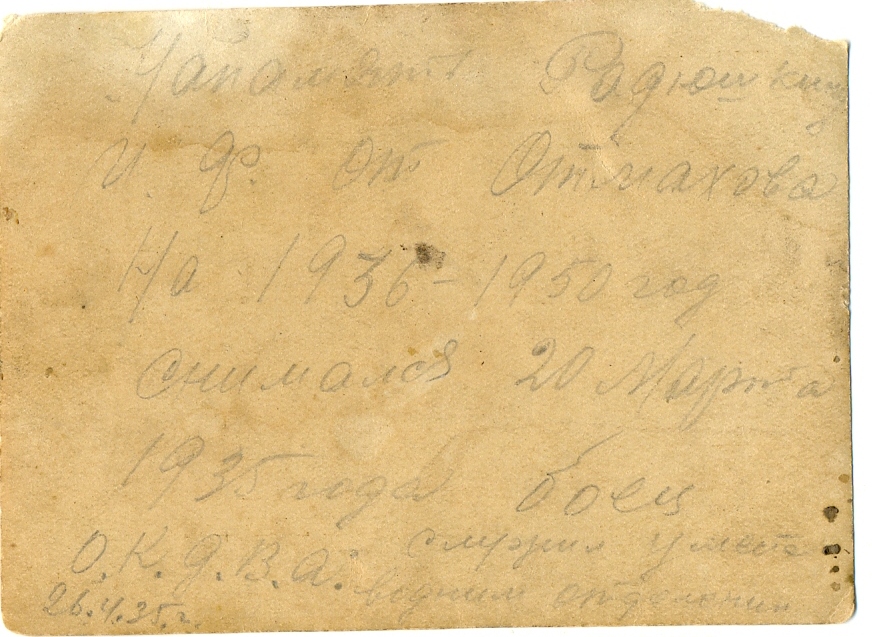 На память Радюшкину
И. Ф. от Отмахова
На 1936-1950 год
снимался 20 Марта
1935 года боец
О. К. Д. В. А. служил вместе
водним отделении
26.4.35. г.